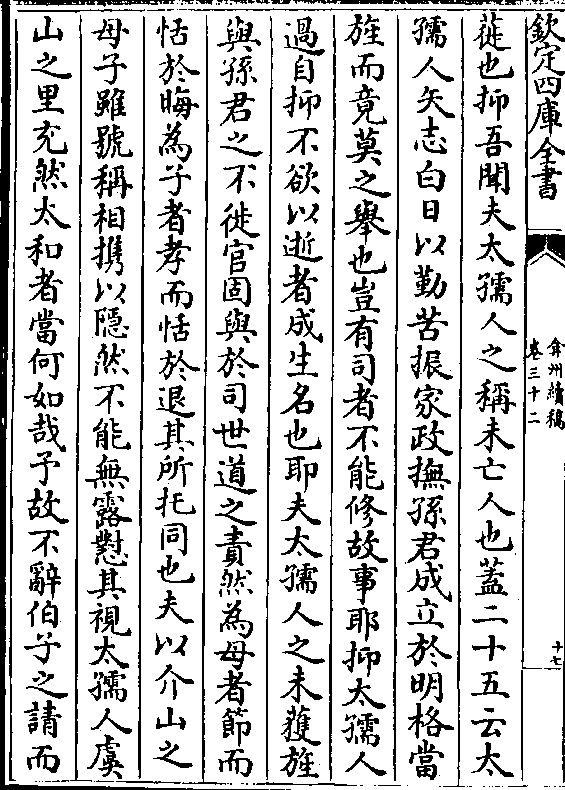 欽定四庫全書
弇州續稿
卷三十二
十七
蓰也抑吾聞夫太孺人之稱未亡人也蓋二十五云太
孺人矢志白日以勤苦振家政撫孫君成立於明格當
旌而竟莫之舉也豈有司者不能修故事耶抑太孺人
過自抑不欲以逝者成生名也耶夫太孺人之未獲旌
與孫君之不徙官固與於司世道之責然為母者節而
恬於晦為子者孝而恬於退其所托同也夫以介山之
母子雖號稱相攜以隱然不能無露懟其視太孺人虞
山之里充然太和者當何如哉予故不辭伯子之請而